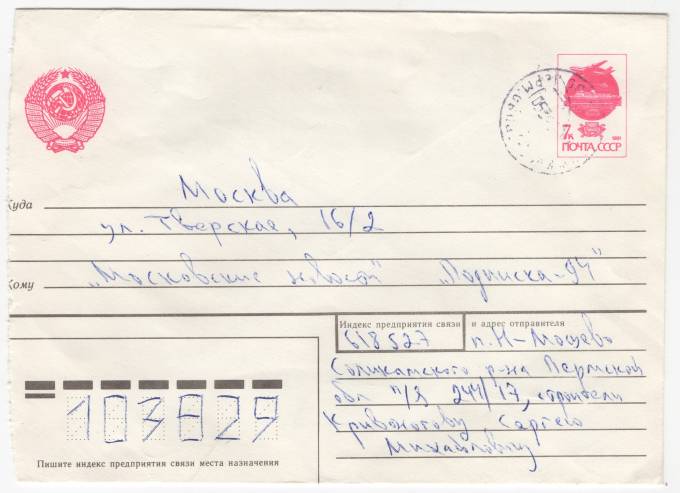 7к
1991
ПОЧТА СССР
Москва
Куда
ул. Тверская, 16/2
Кому
„Московские новости" „Подписка-94"
Индекс предприятия связи и адрес отправителя
618527 п. Н-Мошево
Соликамского р-на Пермской
обл п/я 244/17, строители
Кривоногову Сергею
Михайловичу
103829
Пишите индекс предприятия связи места назначения